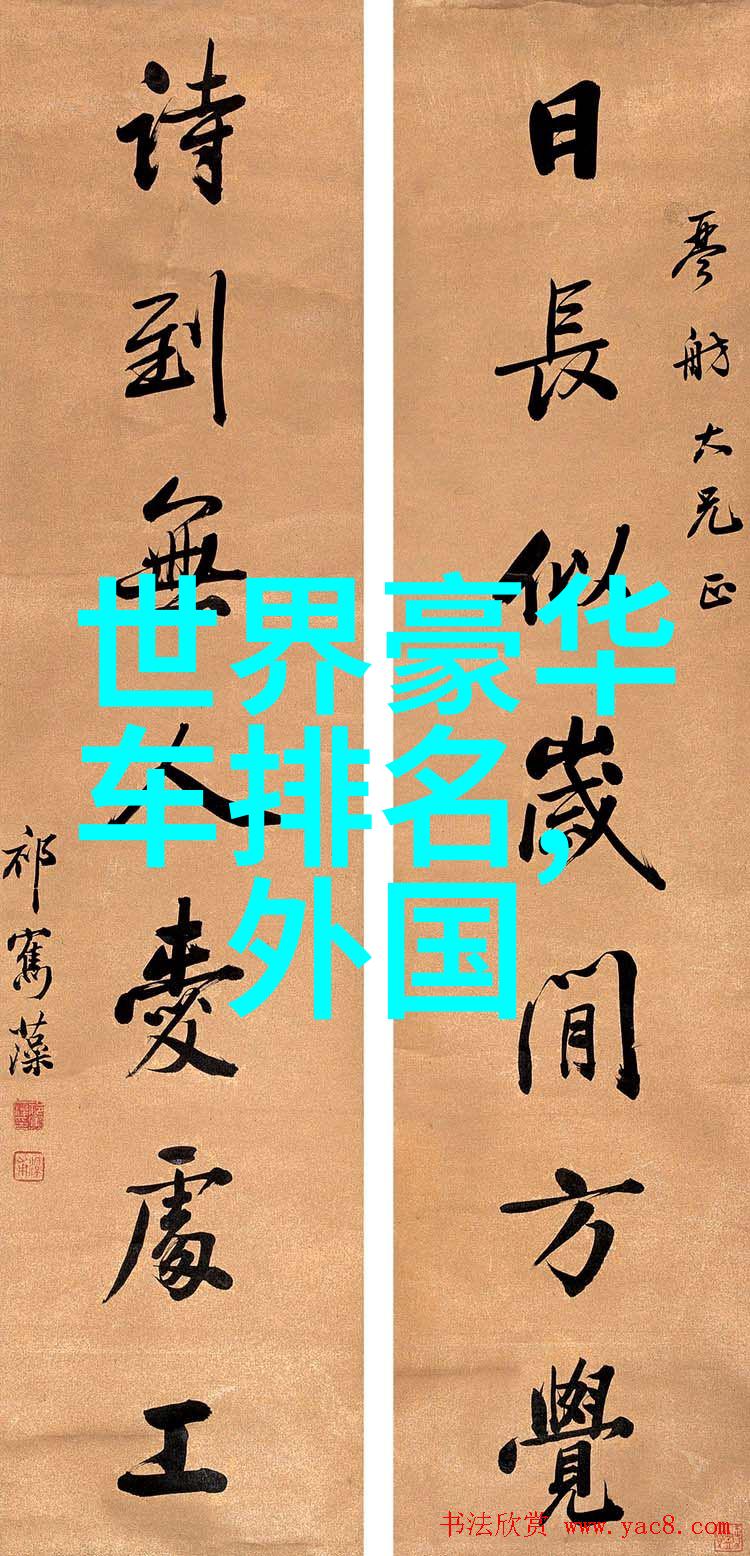 琴舫大兄正
日長似歲閒方覺
詩到無人愛處工
祁寯藻
世界豪华
车排名,
外国
书法欣赏 www.yac8.com